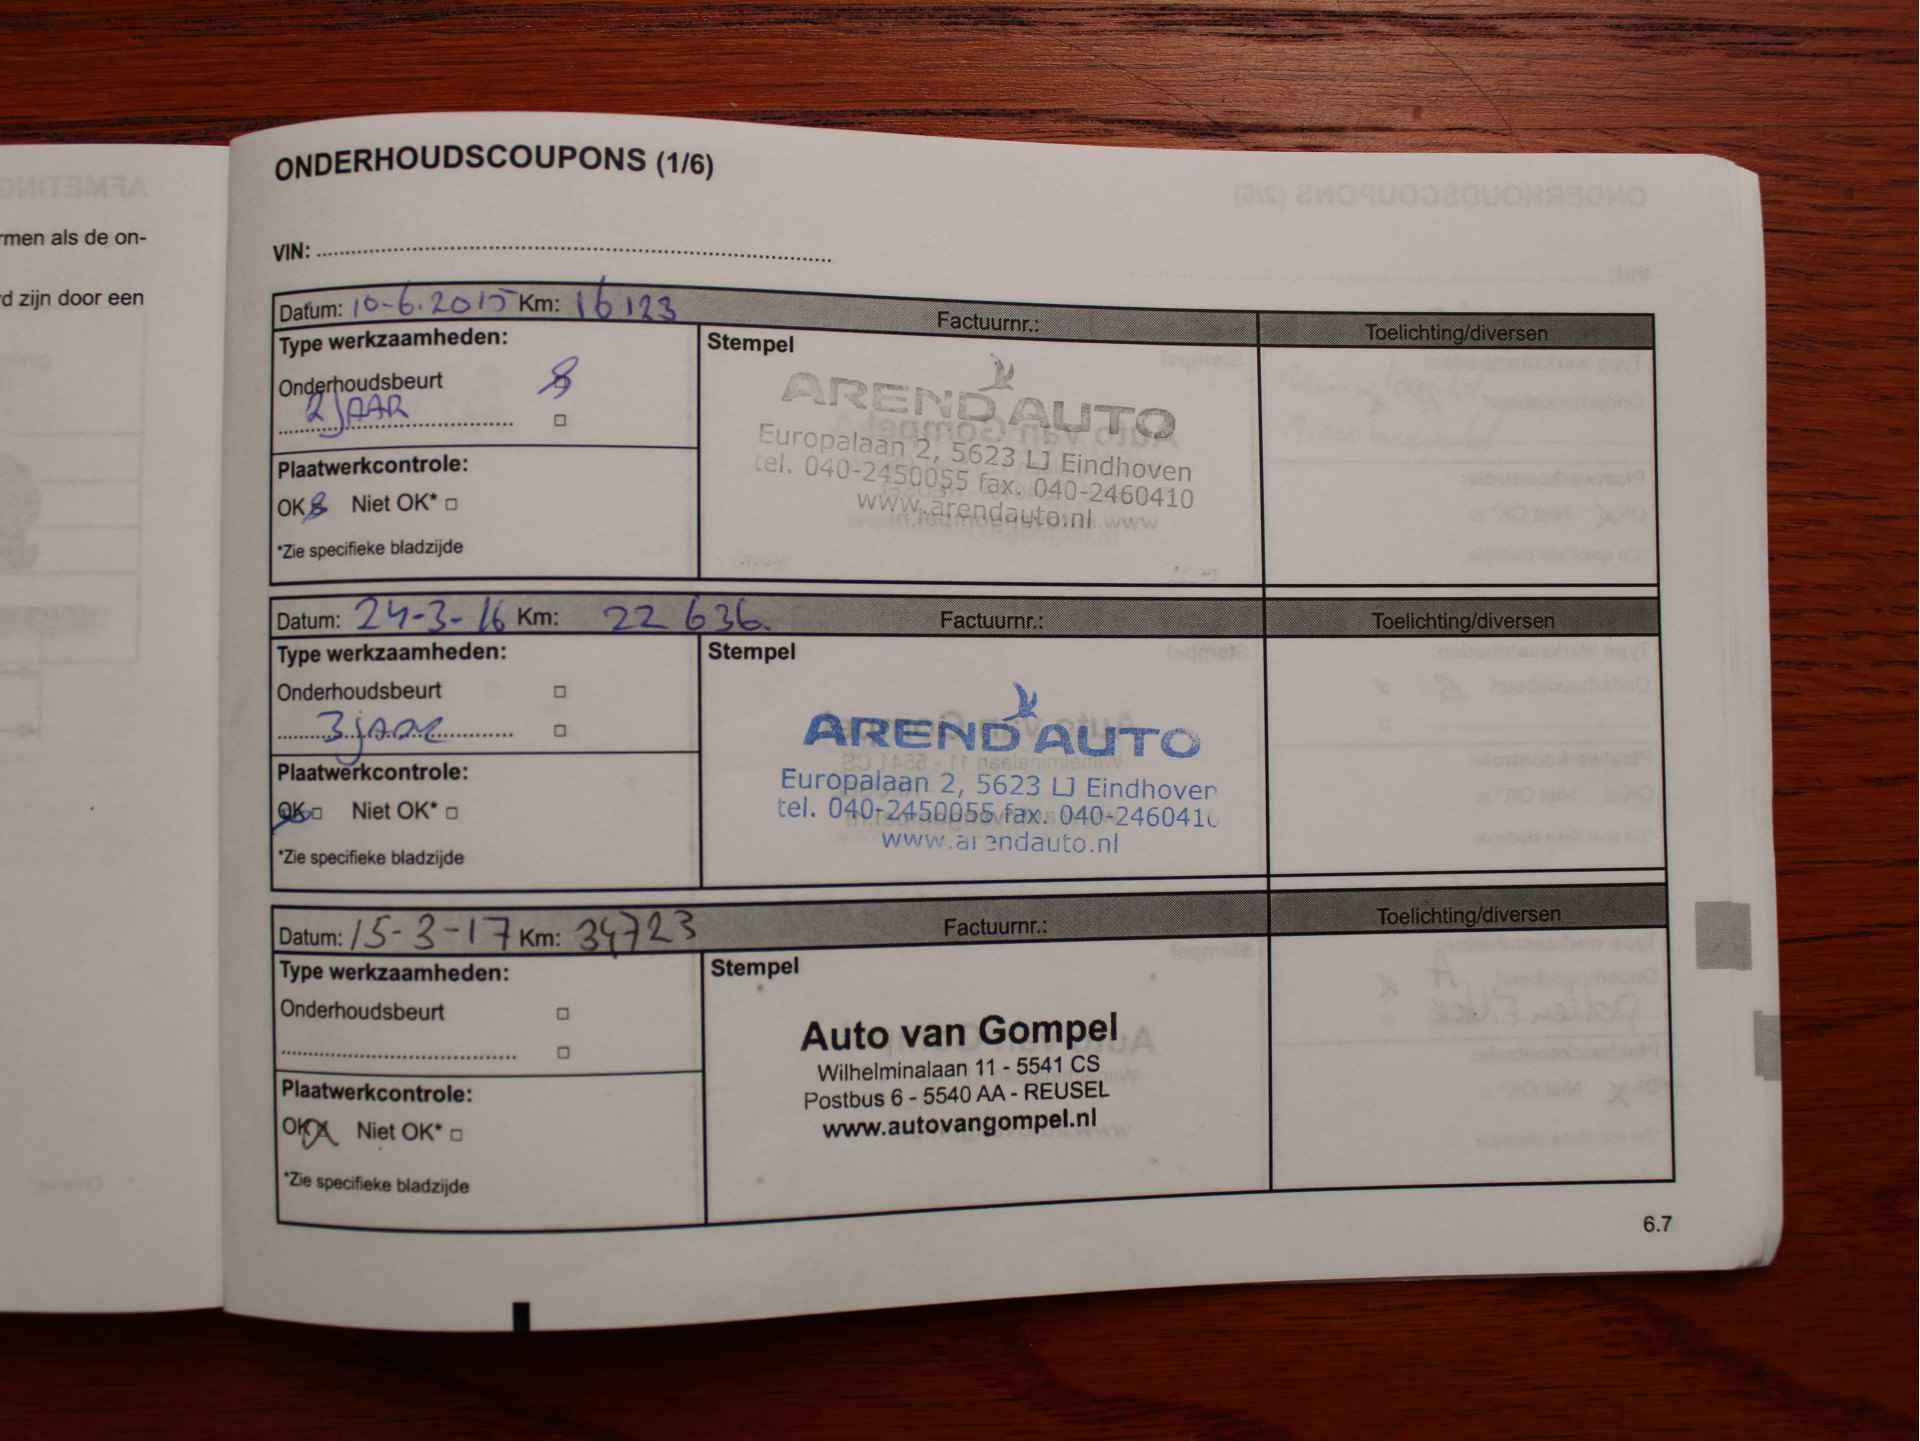 rmen als de on-
d zijn door een
ONDERHOUDSCOUPONS (1/6)
VIN:
Datum: 10-6.2015 Km: 16123 Factuurnr.: Toelichting/diversen
Type werkzaamheden:
Stempel
Onderhoudsbeurt
2 JAAR
Plaatwerkcontrole:
OK Niet OK*
*Zie specifieke bladzijde
AREND AUTO
Europalaan 2, 5623 LJ Eindhoven
tel. 040-2450055 fax. 040-2460410
www.arendauto.nl
Datum: 24-3-16 Km: 22 636. Factuurnr.: Toelichting/diversen
Type werkzaamheden:
Stempel
Onderhoudsbeurt
3 jAAR
Plaatwerkcontrole:
OK Niet OK*
*Zie specifieke bladzijde
AREND AUTO
Europalaan 2, 5623 LJ Eindhoven
tel. 040-2450055 fax. 040-2460410
www.arendauto.nl
Datum: 15-3-17 Km: 34723 Factuurnr.: Toelichting/diversen
Type werkzaamheden:
Stempel
Onderhoudsbeurt
Plaatwerkcontrole:
OK Niet OK*
*Zie specifieke bladzijde
Auto van Gompel
Wilhelminalaan 11 - 5541 CS
Postbus 6 - 5540 AA - REUSEL
www.autovangompel.nl
6.7